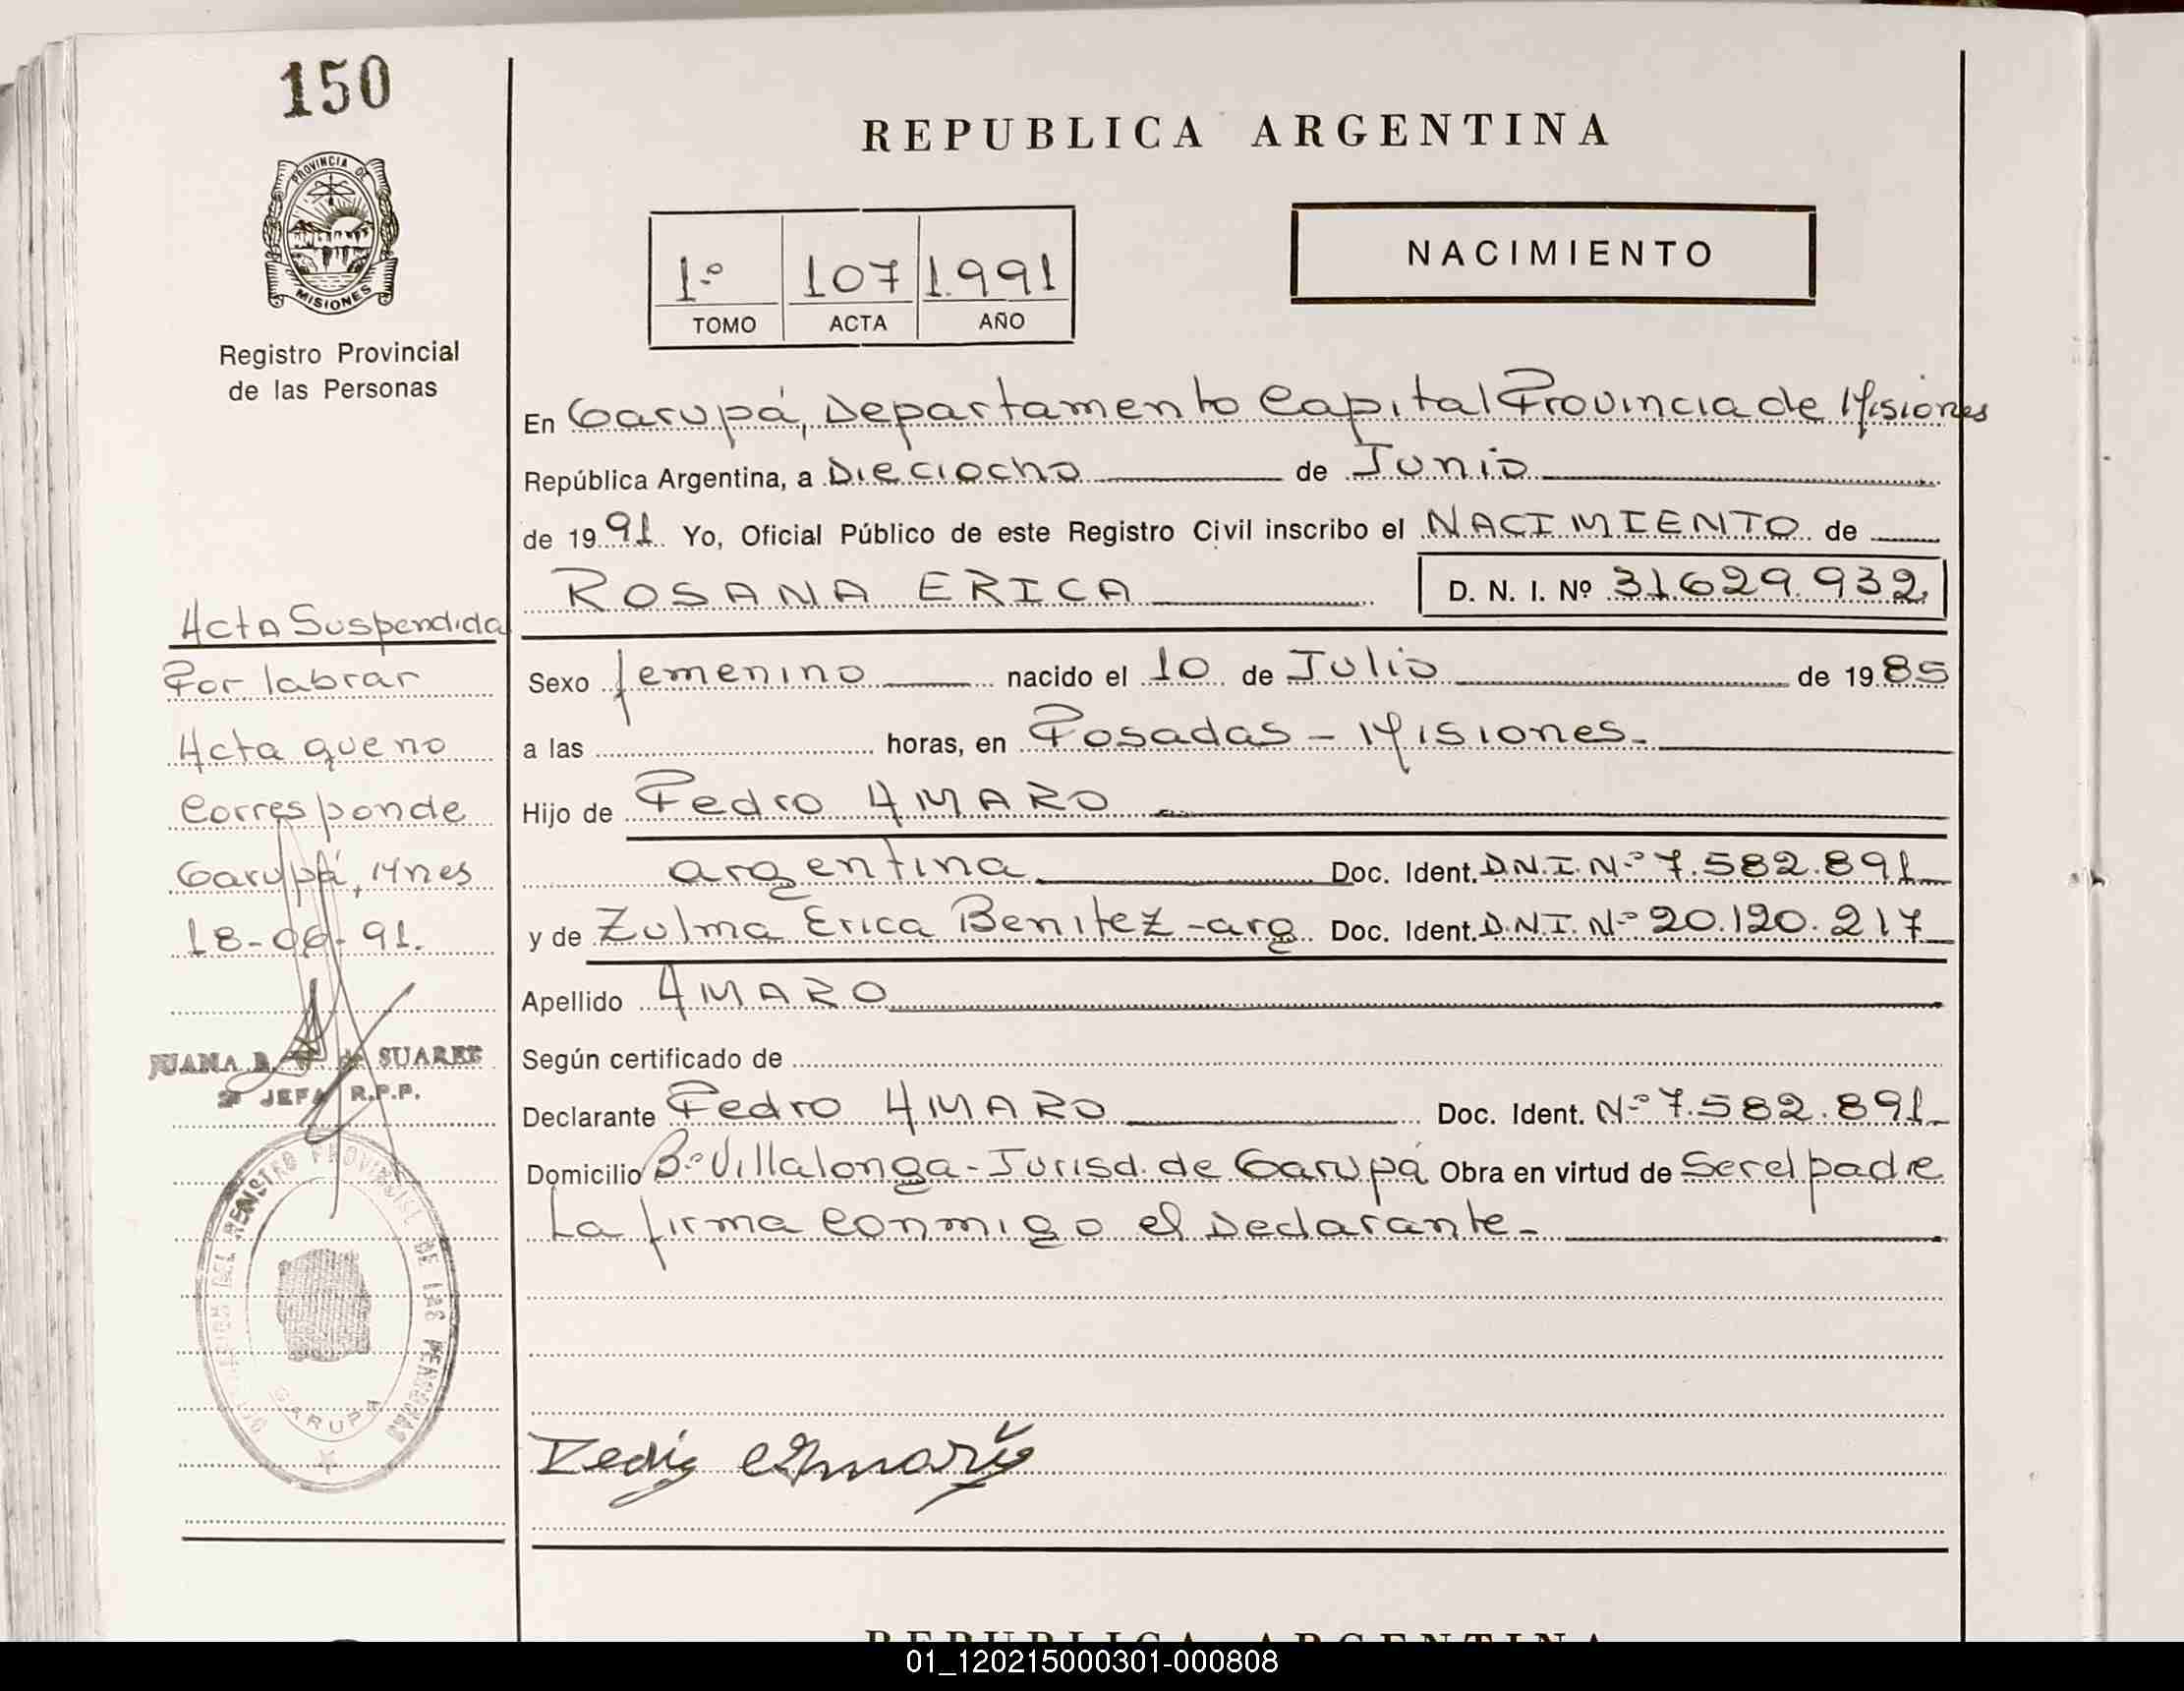 150
PROVINCIA DE
MISIONES
Registro Provincial
de las Personas
REPUBLICA ARGENTINA
1º 107 1.991
TOMO ACTA AÑO
NACIMIENTO
En Garupá, Departamento Capital Provincia de Misiones
República Argentina, a Dieciocho de Junio
de 1991 Yo, Oficial Público de este Registro Civil inscribo el NACIMIENTO de
ROSANA ERICA D. N. I. Nº 31.629.932
Sexo femenino nacido el 10 de Julio de 1985
a las horas, en Posadas - Misiones-
Hijo de Pedro AMARO
argentina Doc. Ident. D.N.I. Nº 7.582.891
y de Zulma Erica Benitez-arg Doc. Ident. D.N.I. Nº 20.120.217
Apellido AMARO
Según certificado de
Declarante Pedro AMARO Doc. Ident. Nº 7.582.891
Domicilio Bº Villalonga-Jurisd. de Garupá Obra en virtud de Ser el padre
La firma conmigo el Declarante-
Acta Suspendida
Por labrar
Acta que no
Corresponde
Garupá, Mnes
18-06-91.
JUANA B. de SUAREZ
JEFA R.P.P.
DEL REGISTRO PROVINCIAL DE LAS PERSONAS
GARUPA
REPUBLICA ARGENTINA
01_120215000301-000808